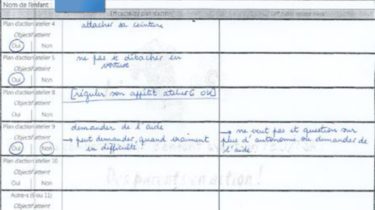 Nom de l'enfant
Plan d'action atelier 4
attacher sa ceinture
Objectif atteint
Oui Non
Plan d'action atelier 5
ne pas se détacher en
voiture
Objectif atteint
Oui Non
Plan d'action atelier 8
[réguler son appétit atelier 6 OU]
Objectif atteint
Oui Non
Plan d'action atelier 9
demander de l'aide
→ ne veut pas et question sur
Objectif atteint
→ peut demander quand vraiment
plus d'autonome ou demander de
Oui Non
en difficulté
l'aide
Plan d'action atelier 10
Objectif atteint
Oui Non
Des parents en action !
Autre-s (6 ou 11)
Objectif atteint